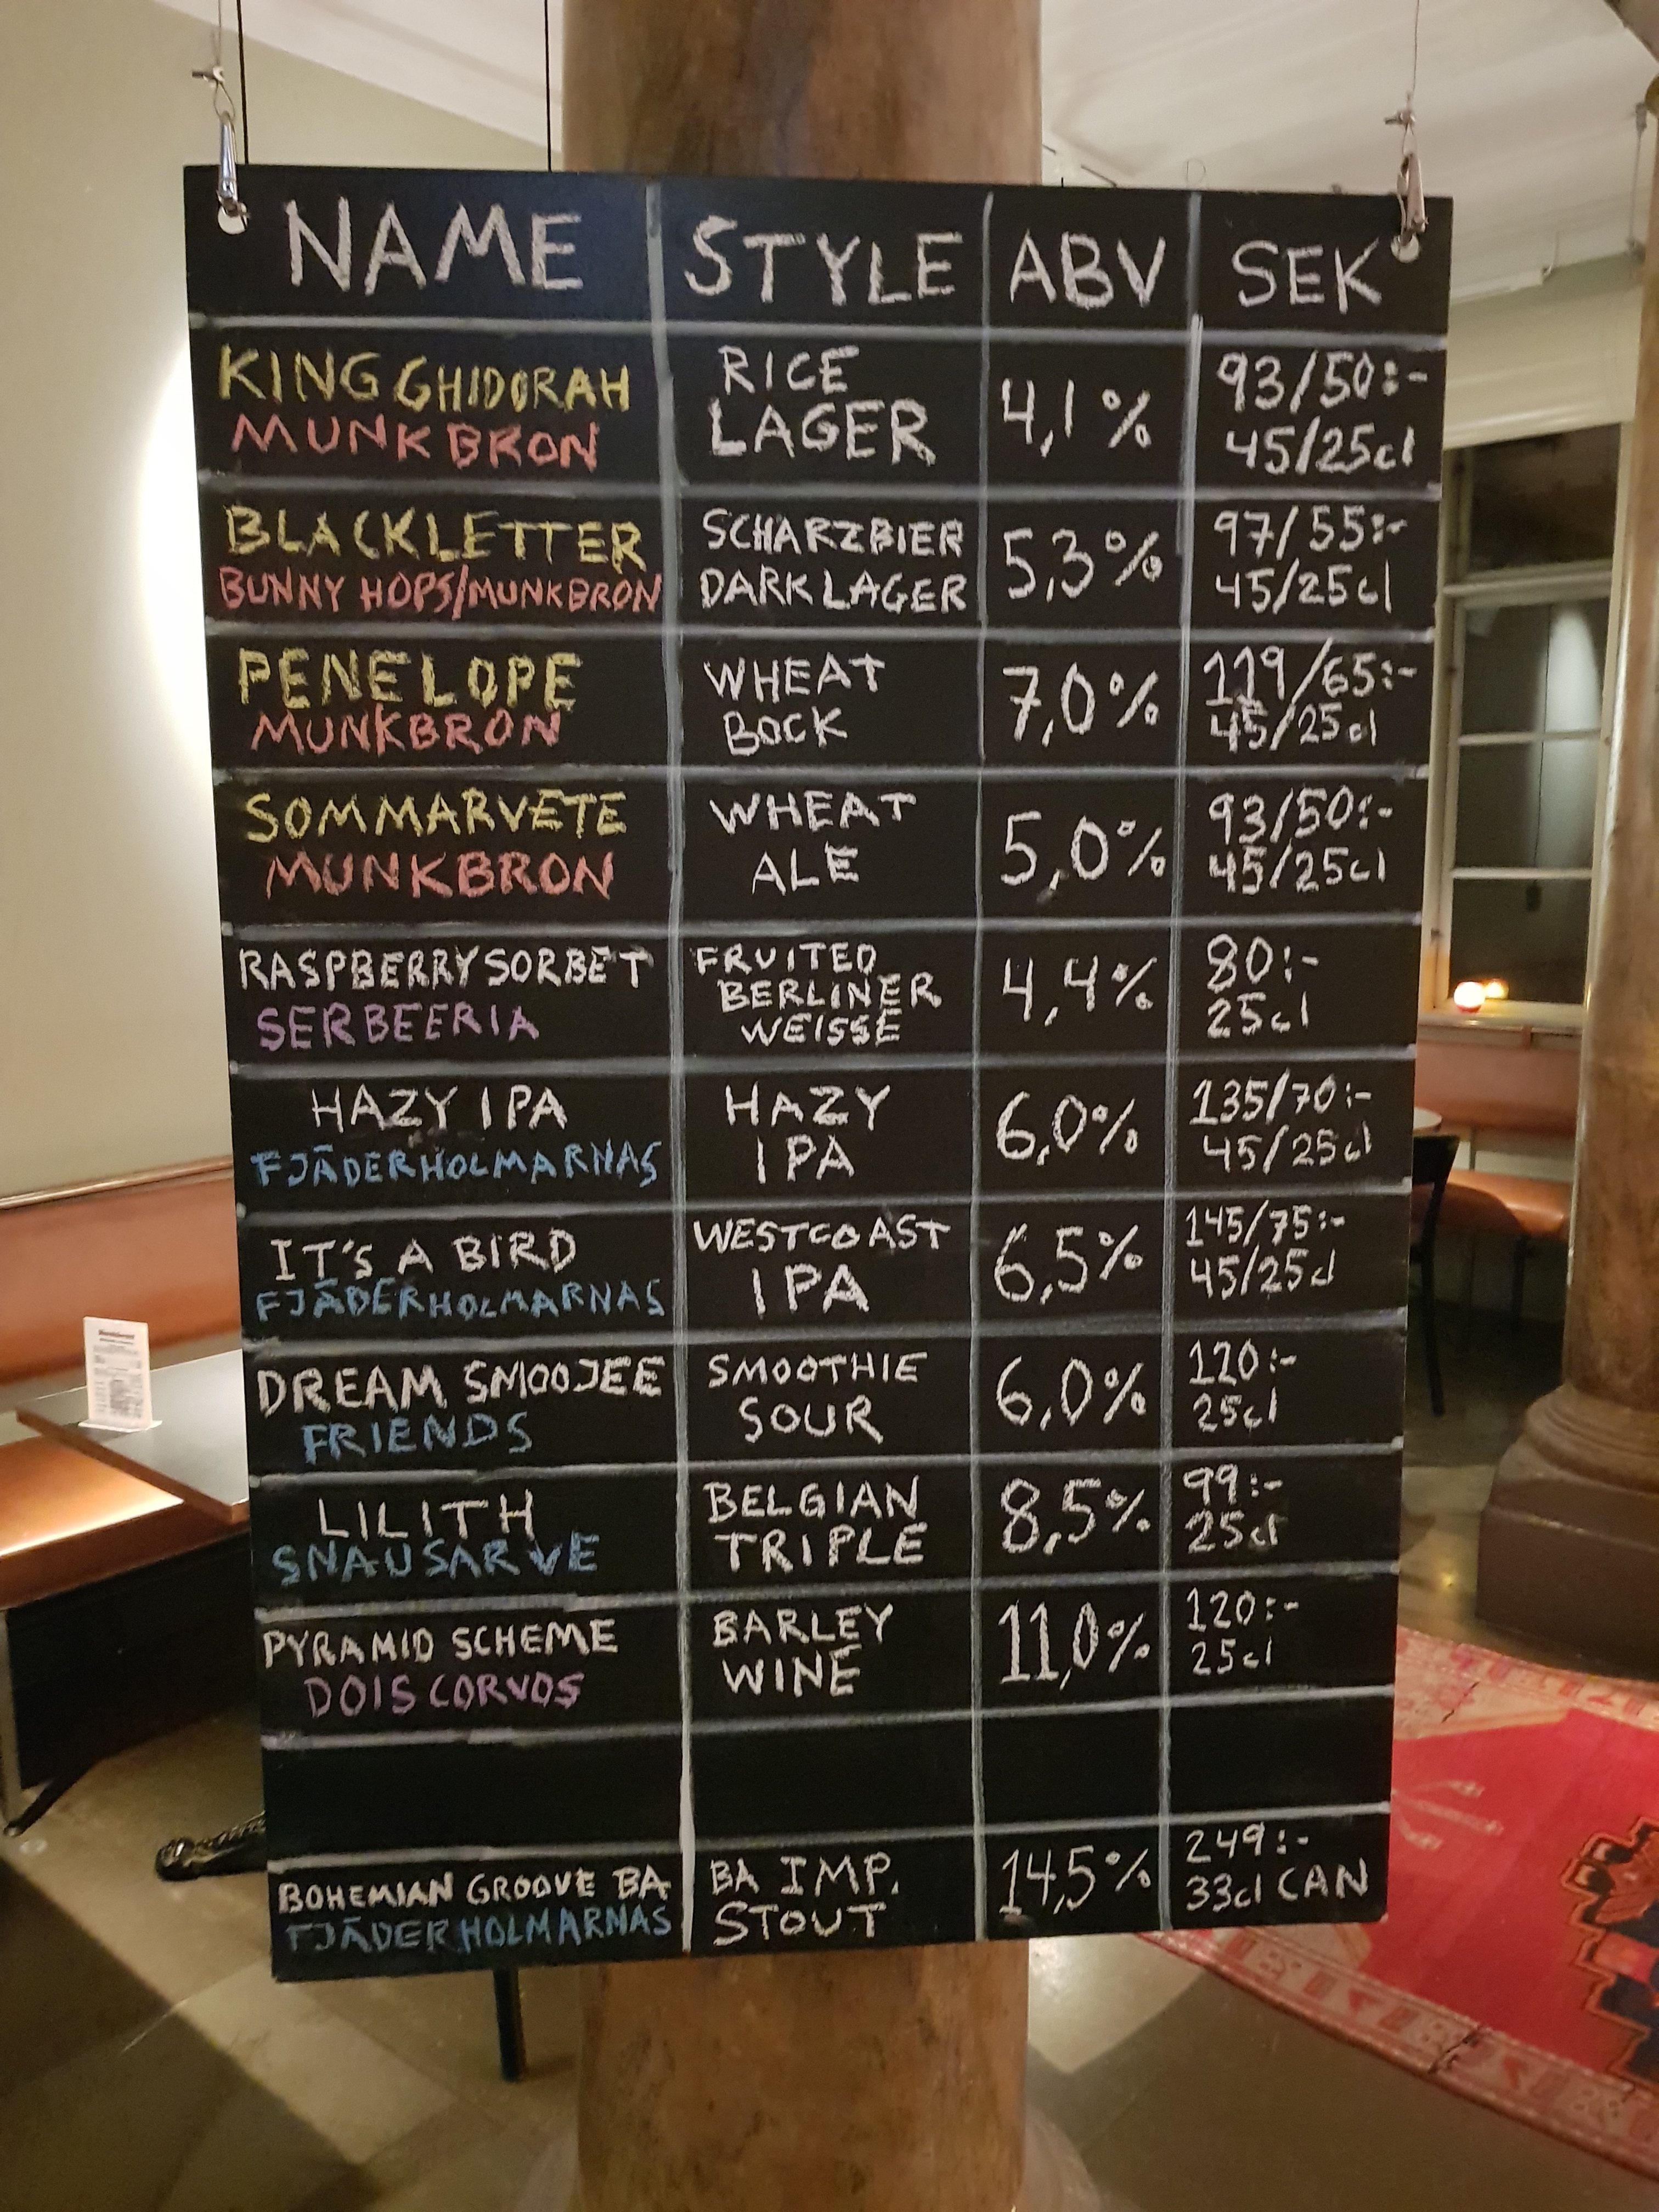 NAME STYLE ABV SEK
KING GHIDORAH RICE 4,1% 93/50:-
MUNKBRON LAGER 45/25cl
BLACKLETTER SCHARZBIER 5,3% 97/55:-
BUNNY HOPS/MUNKBRON DARK LAGER 45/25cl
PENELOPE WHEAT 7,0% 119/65:-
MUNKBRON BOCK 45/25cl
SOMMARVETE WHEAT 5,0% 93/50:-
MUNKBRON ALE 45/25cl
RASPBERRY SORBET FRUITED 4,4% 80:-
SERBEERIA BERLINER 25cl
WEISSE
HAZY IPA HAZY 6,0% 135/70:-
FJÄDERHOLMARNAS IPA 45/25cl
IT'S A BIRD WESTCOAST 6,5% 145/75:-
FJÄDERHOLMARNAS IPA 45/25cl
DREAM SMOOJEE SMOOTHIE 6,0% 120:-
FRIENDS SOUR 25cl
LILITH BELGIAN 8,5% 99:-
SNAUSARVE TRIPLE 25cl
PYRAMID SCHEME BARLEY 11,0% 120:-
DOIS CORVOS WINE 25cl
BOHEMIAN GROOVE BA BA IMP. 14,5% 249:-
FJÄDERHOLMARNAS STOUT 33cl CAN